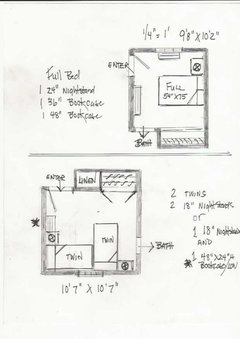 1/4" = 1' 9'8" X 10'2"
ENTER
Full Bed
1 24" Nightstand
1 36" Bookcase
1 48" Bookcase
FULL
54" X 75
BATH
ENTER
LINEN
2 TWINS
2 18" Nightstands
OR
1 18" Nightstand
AND
1 48"X24"H
TWIN
TWIN
BATH
10'7" X 10'7"